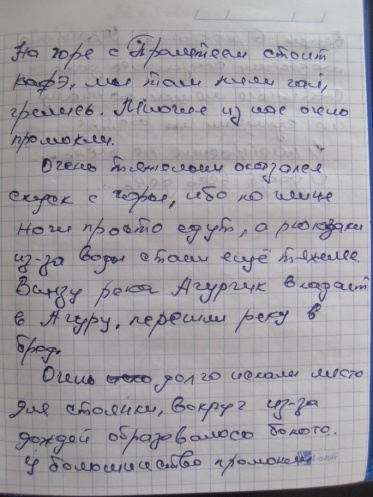 На горе с Прометеем стоит
кафэ, мы там пили чай,
грелись. Многие из нас очено
промокли.
Очень тяжолым оказался
спуск с горы, ибо по глине
ноги просто едут, а рюкзаки
из-за воды стали ещё тяжелее.
Внизу река Агурчик впадает
в Агуру, перешли реку в
брод.
Очень долго искали место
для стоянки, вокруг из-за
дождей образовалось болото.
У большинство промокли